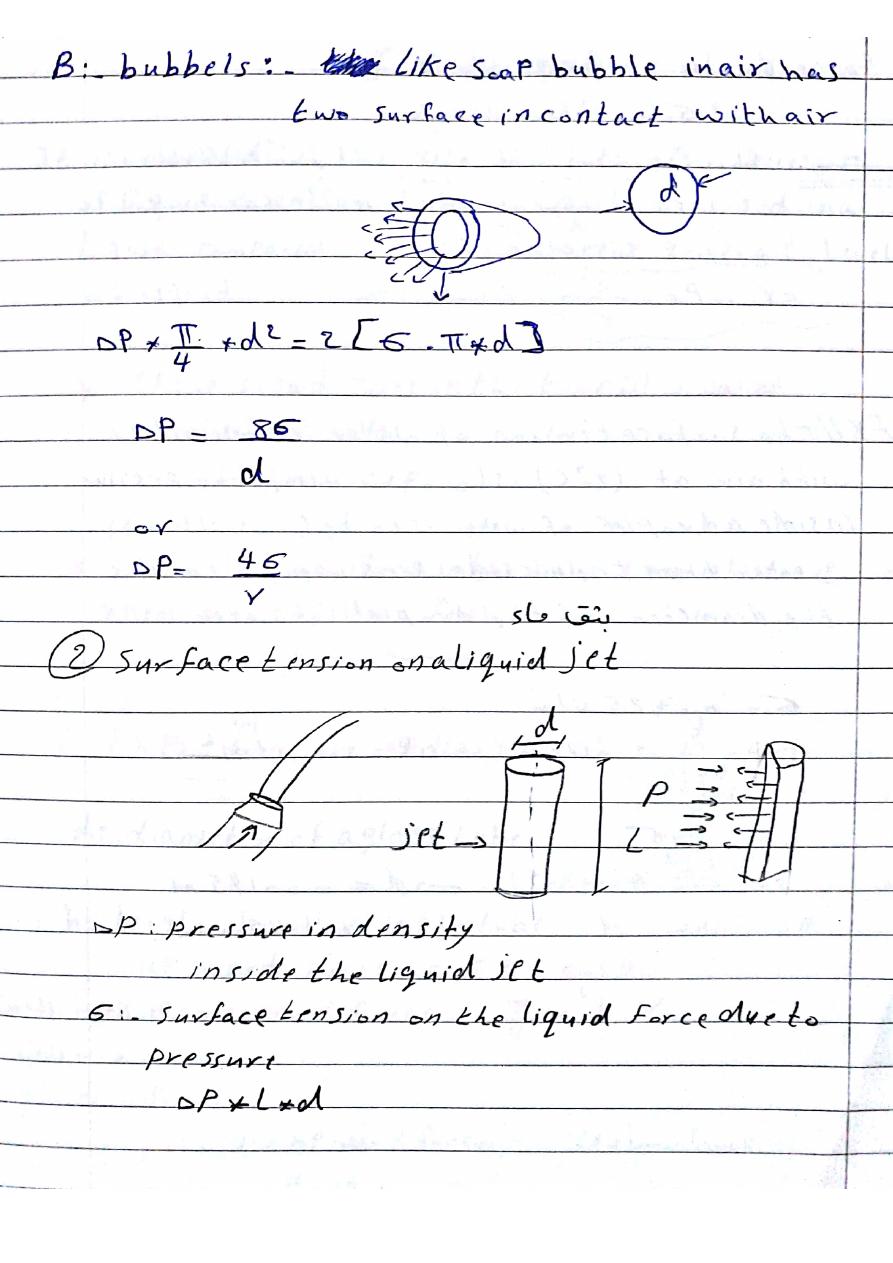 B:- bubbels:- Like Soap bubble in air has
two surface in contact with air
d
ΔP * π/4 * d² = 2 [σ . π * d]
ΔP = 8σ/d
or
ΔP = 4σ/r
بثق ماء
② Surface tension on a liquid jet
d
P
jet →
L
ΔP : pressure in density
inside the liquid jet
σ:- surface tension on the liquid Force due to
pressure
ΔP * L * d